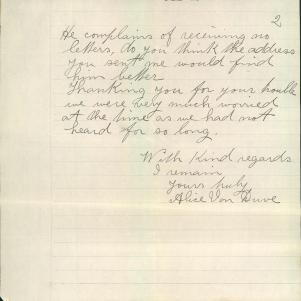 2
He complains of receiving no
letters, do you think the address
you sent me would find
him better
Thanking you for your trouble
we were very much worried
at the time as we had not
heard for so long.
With Kind regards
I remain
Yours truly
Alice Von Duve